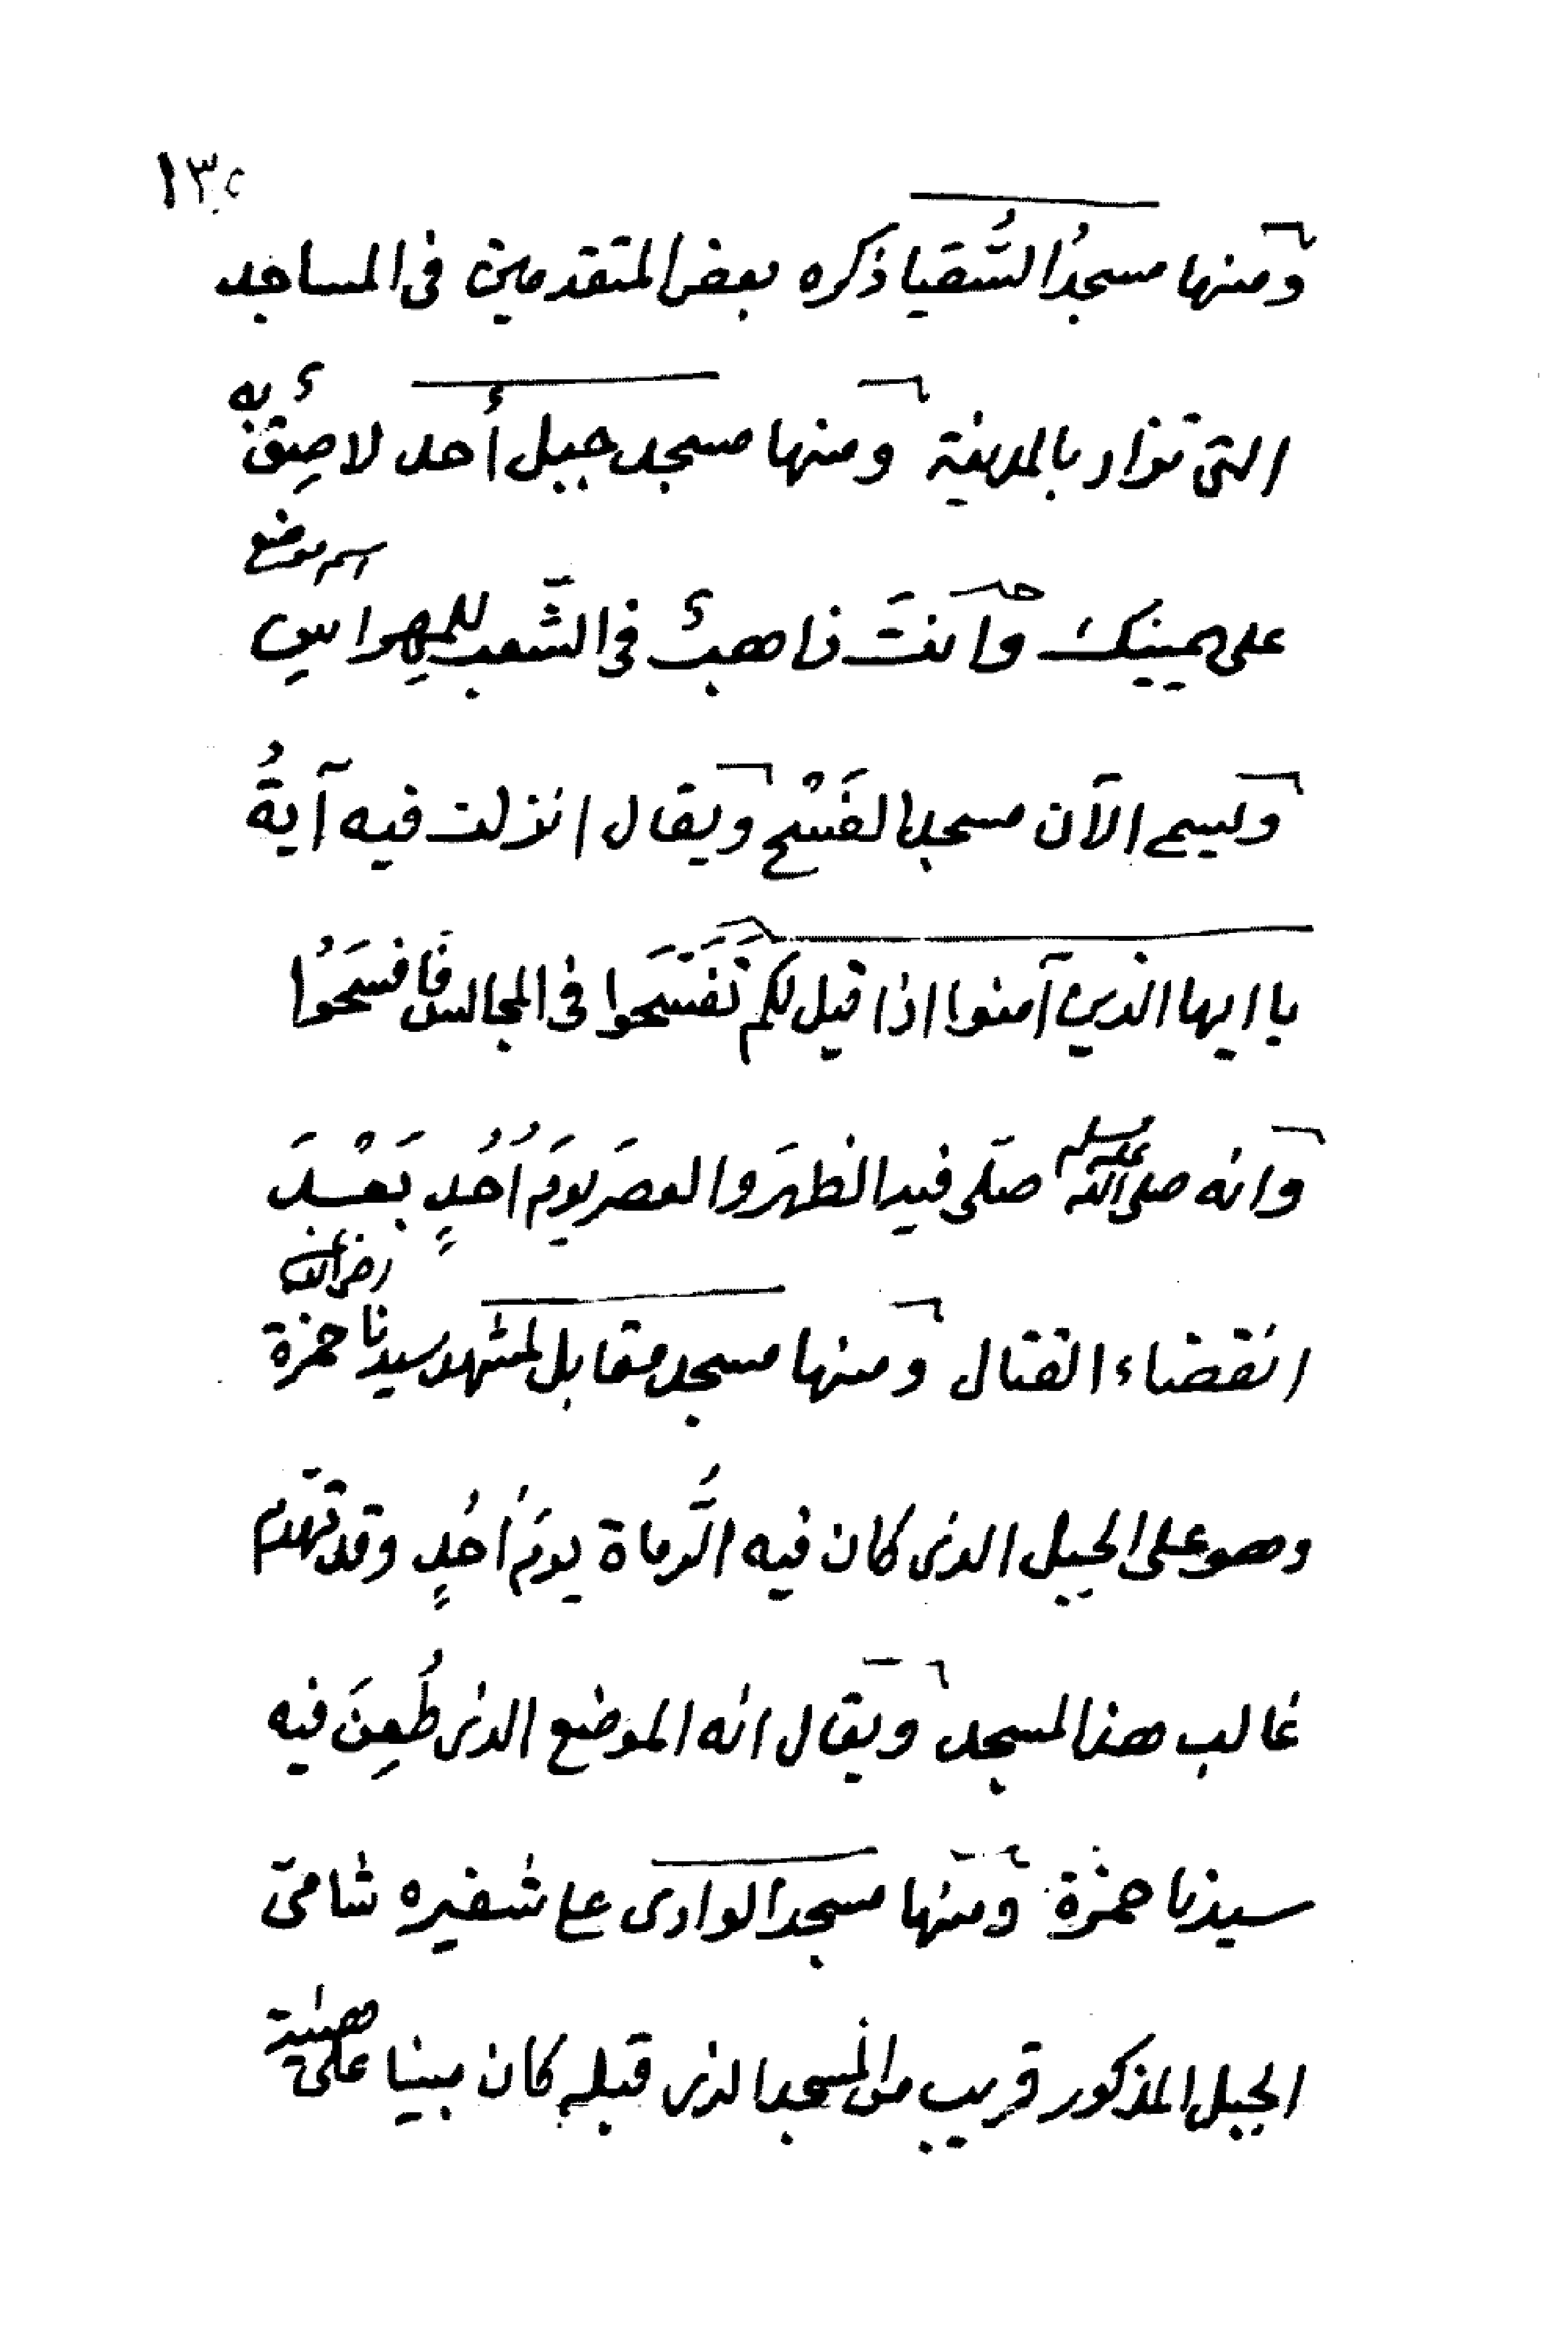 ١٣٥
ومنها مسجدُ السُّقيا ذكره بعض المتقدمين في المساجد
التي تزار بالمدينة ومنها مسجد جبل أُحد لاصِقٌ به
على يمينك وأنتَ ذاهبٌ في الشّعب للمِهراسِ
اسم موضع
ويسمى الآن مسجد الفَسْح ويقال انزلت فيه آيةُ
يا ايها الذين آمنوا اذا قيل لكم تَفَسَّحوا في المجالس فَافسَحُوا
وانه صلى الله عليه وسلم صلّى فيه الظهرَ والعصرَ يومَ أُحُدٍ بَعْدَ
انقضاء القتال ومنها مسجد مقابل لمشهد سيدنا حمزة
رضي الله عنه
وهو على الجبل الذي كان فيه الرُّماة يومَ أُحُدٍ وقد تهدّم
غالب هذا المسجد ويقال انه الموضع الذي طُعِنَ فيه
سيدنا حمزة ومنها مسجد الوادي على شفيره شامي
الجبل المذكور قريب من المسجد الذي قبله كان مبينا على هيئة